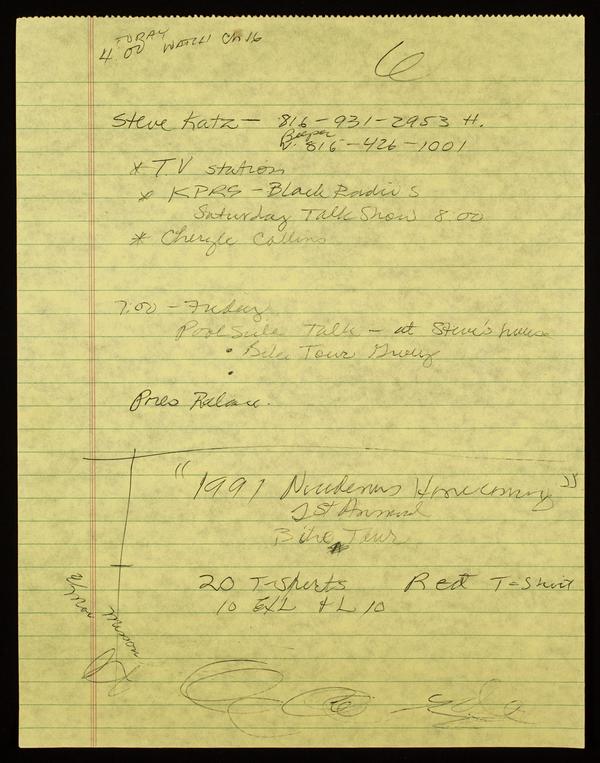 TODAY
4:00 WATCH Ch 16
6
Steve Katz — 816-931-2953 H.
Beeper
816-426-1001
* TV station
* KPRS - Black Radio
Saturday Talk Show 8:00
* Cheryle Collins
7:00 - Friday
Pool Side Talk - at Steve's house
• Bike Tour
•
Pres Relase.
"1991 Nicodemus Homecoming"
1st Annual
Bike Tour
20 T-shirts Red T-Shirt
10 ExL & L 10